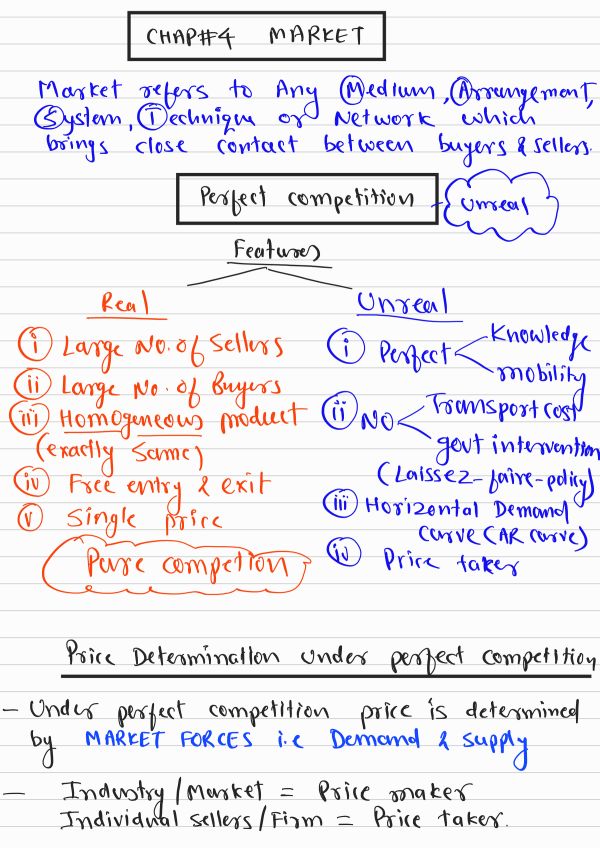 CHAP#4 MARKET
Market refers to Any Medium, Arrangement,
System, Technique or Network which
brings close contact between buyers & sellers.
Perfect competition
Unreal
Features
Real
(i) Large No. of Sellers
(ii) Large No. of Buyers
(iii) Homogeneous product
(exactly same)
(iv) Free entry & exit
(v) Single price
Pure competion
Unreal
(i) Perfect
Knowledge
mobility
(ii) NO
Transport cost
govt intervention
(Laissez-faire-policy)
(iii) Horizontal Demand
curve (AR curve)
(iv) Price taker
Price Determination under perfect competition
- Under perfect competition price is determined
by MARKET FORCES i.e Demand & supply
- Industry/Market = Price maker
Individual sellers/Firm = Price taker.